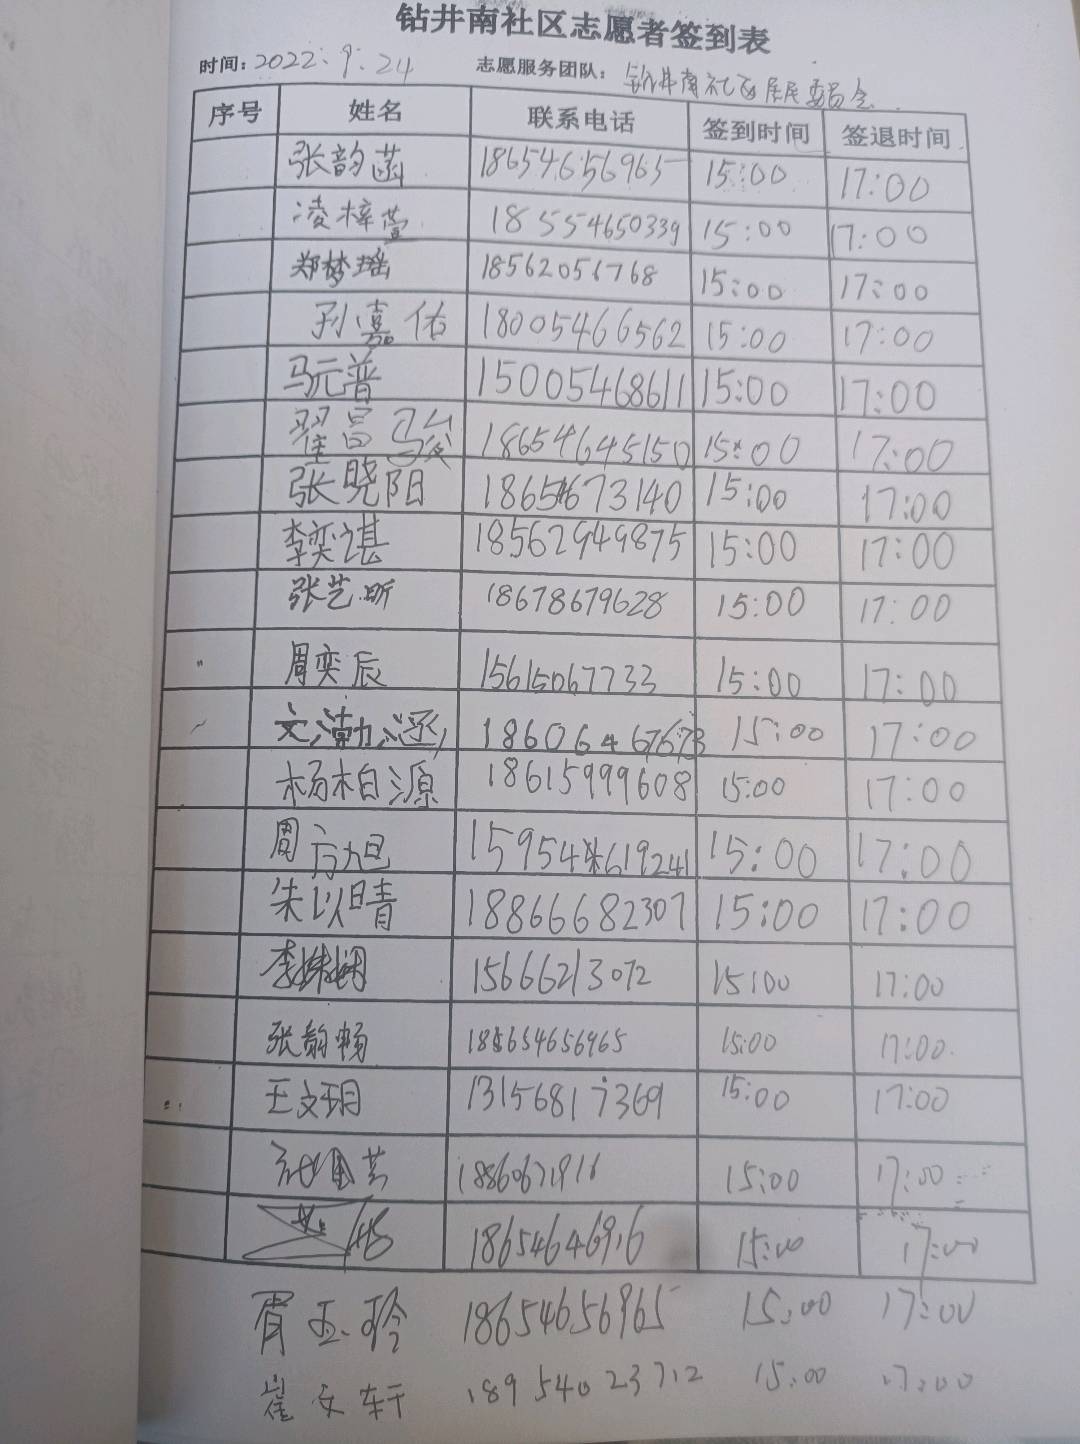 钻井南社区志愿者签到表
时间：2022.9.24 志愿服务团队：钻井南社区居民委员会
序号 姓名 联系电话 签到时间 签退时间
张韵菡 18654656965 15:00 17:00
凌梓萱 18554650339 15:00 17:00
郑梦瑶 18562056768 15:00 17:00
孙嘉佑 18005466562 15:00 17:00
马元普 15005468611 15:00 17:00
翟昌骏 18654645150 15:00 17:00
张晓阳 18654673140 15:00 17:00
李奕谌 18562949875 15:00 17:00
张艺昕 18678679628 15:00 17:00
周奕辰 15615067733 15:00 17:00
文渤涵 15:00 17:00
杨柏源 18615999608 15:00 17:00
周方旭 15:00 17:00
朱以晴 18866682307 15:00 17:00
李姝娴 15666213072 15:00 17:00
张韵畅 15:00 17:00
王文玥 13156817369 15:00 17:00
15:00 17:00
15:00 17:00
胥玉玲 18654656965 15:00 17:00
崔文轩 15:00 17:00